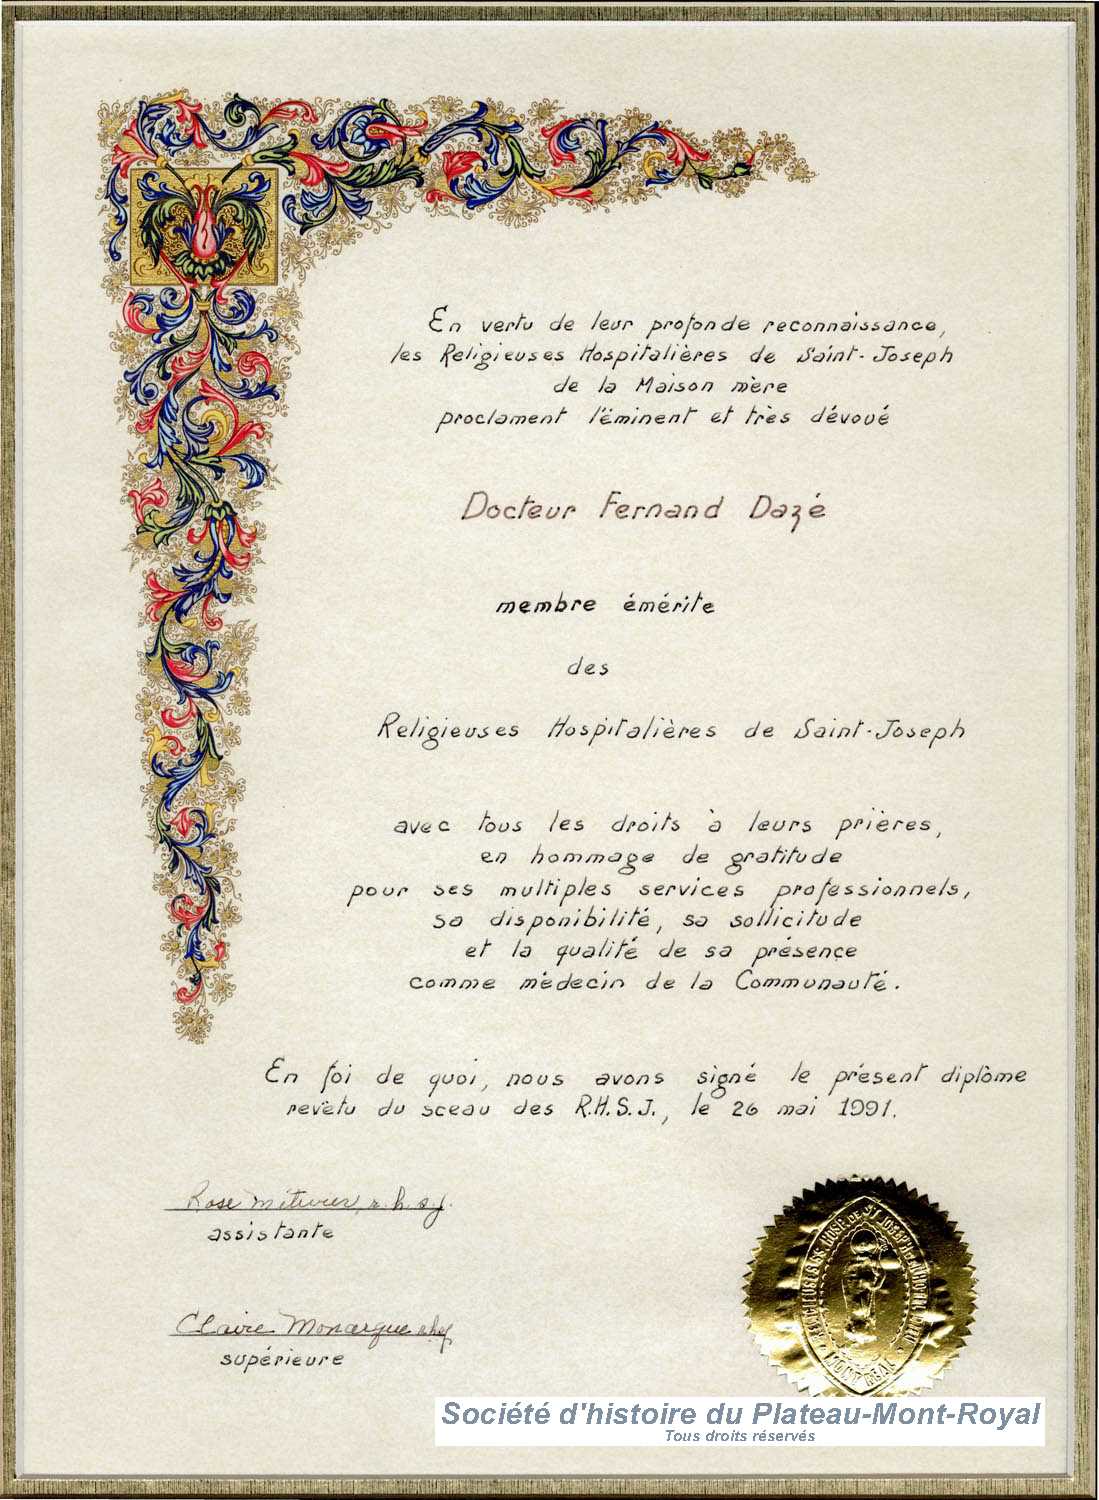 En vertu de leur profonde reconnaissance,
les Religieuses Hospitalières de Saint-Joseph
de la Maison mère
proclament l'éminent et très dévoué
Docteur Fernand Dazé
membre émérite
des
Religieuses Hospitalières de Saint-Joseph
avec tous les droits à leurs prières,
en hommage de gratitude
pour ses multiples services professionnels,
sa disponibilité, sa sollicitude
et la qualité de sa présence
comme médecin de la Communauté.
En foi de quoi, nous avons signé le présent diplôme
revêtu du sceau des R.H.S.J., le 26 mai 1991.
Rose r.h.s.j.
assistante
Claire Monarque
supérieure
HOSP. DE ST JOSEPH
MONTREAL
Société d'histoire du Plateau-Mont-Royal
Tous droits réservés